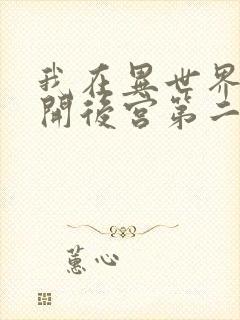 我在異世界
開後宮第二
蕙心